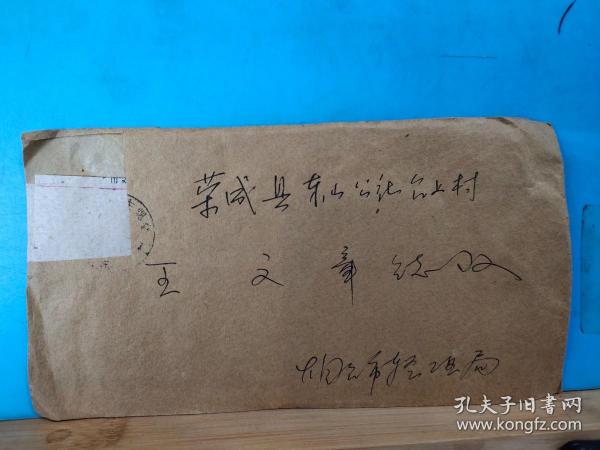 荣成县东山公社台上村
王文章 同志收
烟台市轻工业局
孔夫子旧书网
www.kongfz.com